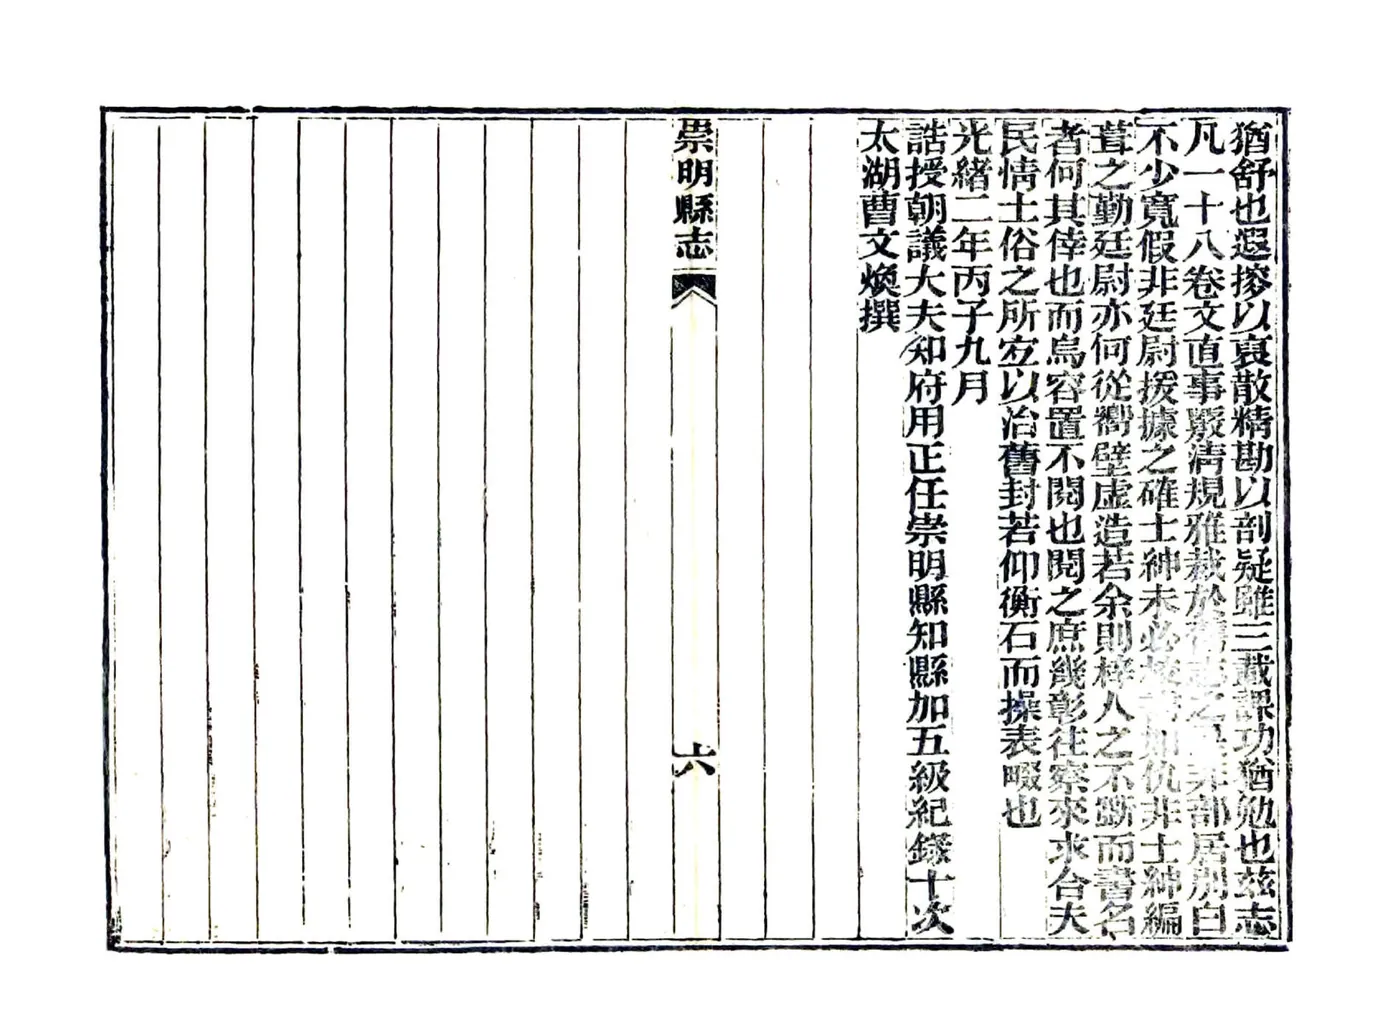 猶舒也遐搜以裒散精勘以剖疑雖三載課功猶勉也茲志
凡一十八卷文直事嚴淸規雅裁於舊志之是非部居別白
不少寬假非廷尉援據之確士紳未必校如仇非士紳編
葺之勤廷尉亦何從嚮壁虛造若余則梓人之不斲而書名
者何其倖也而烏容置不閱也閱之庶幾彰往察來求合夫
民情土俗之所宜以治舊封若仰衡石而操表畷也
光緒二年丙子九月
誥授朝議大夫知府用正任崇明縣知縣加五級紀錄十次
太湖曹文煥撰
崇明縣志
六